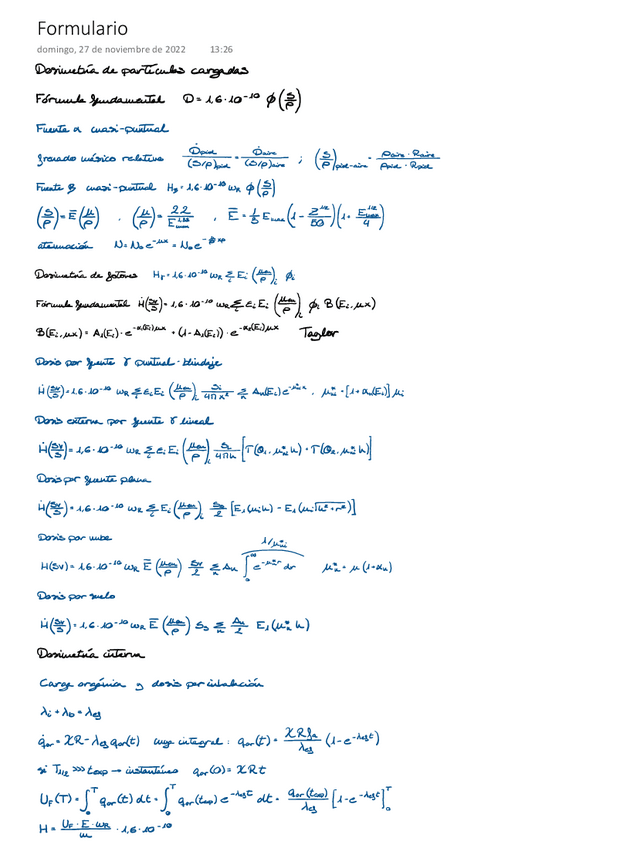 Formulario
domingo, 27 de noviembre de 2022 13:26
Dosimetría de partículas cargadas
Fórmula fundamental D = 1,6·10⁻¹⁰ ϕ (S/ρ)
Fuente α cuasi-puntual
frenado másico relativo Ḋpoid/(S/ρ)poid = Ḋaire/(S/ρ)aire ; (S/ρ)poid-aire = ρaire·Raire/ρpoid·Rpoid
Fuente β cuasi-puntual Hβ = 1,6·10⁻¹⁰ ωR ϕ (S/ρ)
(S/ρ) = Ē (μ/ρ) , (μ/ρ) = 22/Emax , Ē = 1/3 Emax (1 - Z^1/2/50)(1 + Emax^1/2/4)
atenuación N = N₀ e^-μx = N₀ e
Dosimetría de fotones Hγ = 1,6·10⁻¹⁰ ωR Σi Ei (μen/ρ)i ϕi
Fórmula fundamental Ḣ(Sv/S) = 1,6·10⁻¹⁰ ωR Σi εi Ei (μen/ρ)i ϕi B(Ei, μx)
B(Ei, μx) = A₁(Ei)·e^-α₁(Ei)μx + (1 - A₁(Ei))·e^-α₂(Ei)μx Taylor
Dosis por fuente γ puntual - blindaje
Ḣ(Sv/S) = 1,6·10⁻¹⁰ ωR Σi εi Ei (μen/ρ)i Si/4πx² Σn An(Ei) e , = [1 + αn(Ei)] μi
Dosis externa por fuente γ lineal
Ḣ(Sv/S) = 1,6·10⁻¹⁰ ωR Σi εi Ei (μen/ρ)i SL/4πh [T(θ₁, μ*n h) + T(θ₂, μ*n h)]
Dosis por fuente plana
Ḣ(Sv/S) = 1,6·10⁻¹⁰ ωR Σi Ei (μen/ρ)i Sa/2 [E₁(μi h) - E₁(μi √(h² + r²))]
Dosis por nube
1/μ*ni
H(Sv) = 1,6·10⁻¹⁰ ωR Ē (μen/ρ) Sv/2 Σn An ∫₀^∞ e^-μ*n r dr μ*n = μ(1 + αn)
Dosis por suelo
Ḣ(Sv/S) = 1,6·10⁻¹⁰ ωR Ē (μen/ρ) Ss Σn An/2 E₁(μ*n h)
Dosimetría interna
Carga orgánica y dosis por inhalación
λi + λb = λef
q̇or = XR - λef qor(t) cuya integral: qor(t) = XRfa/λef (1 - e^-λef t)
si T1/2 >>> texp → instantáneo qor(0) = XRt
UF(T) = ∫₀^T qor(t) dt = ∫₀^T qor(texp) e^-λef t dt = qor(texp)/λef [1 - e^-λef t]₀^T
H = UF·E·ωR/m · 1,6·10⁻¹⁰